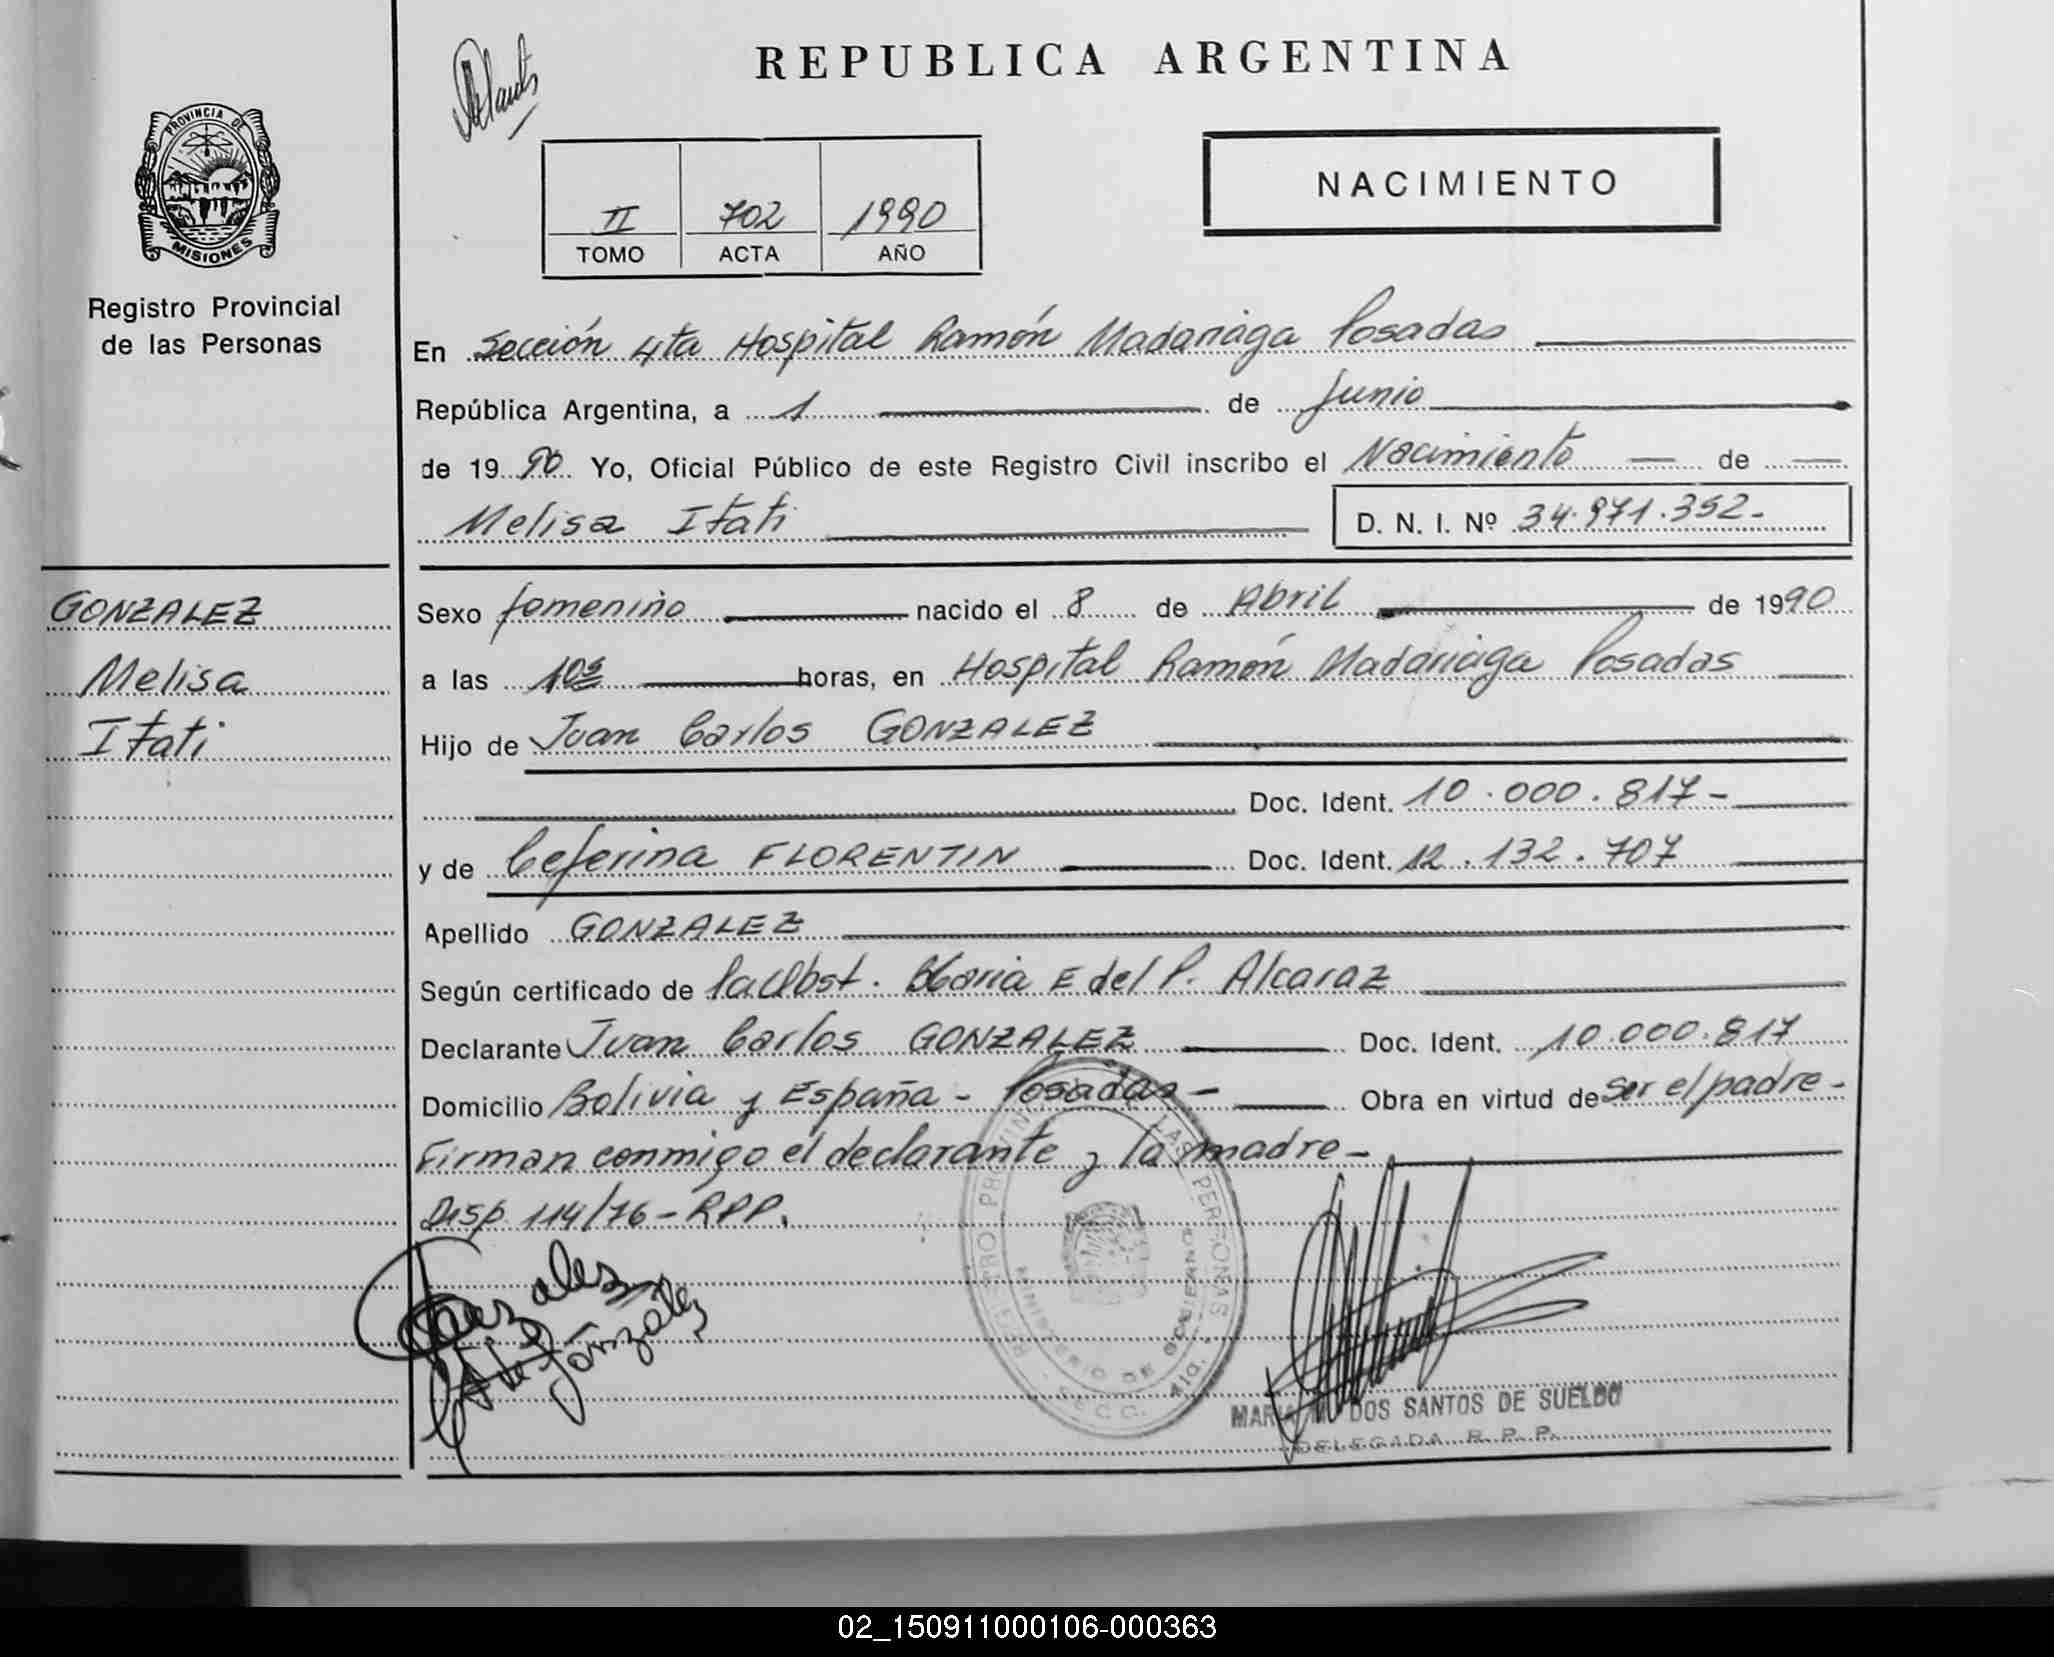 REPUBLICA ARGENTINA
PROVINCIA DE
MISIONES
Registro Provincial
de las Personas
NACIMIENTO
II 702 1990
TOMO ACTA AÑO
En Sección 4ta Hospital Ramón Madariaga Posadas
República Argentina, a 1 de Junio
de 1990 Yo, Oficial Público de este Registro Civil inscribo el Nacimiento de
Melisa Itati D. N. I. Nº 34.971.352.-
GONZALEZ
Melisa
Itati
Sexo femenino nacido el 8 de Abril de 1990
a las horas, en Hospital Ramón Madariaga Posadas
Hijo de Juan Carlos GONZALEZ
Doc. Ident. 10.000.817-
y de Ceferina FLORENTIN Doc. Ident. 12.132.707
Apellido GONZALEZ
Según certificado de la Obst. Maria E del P. Alcaraz
Declarante Juan Carlos GONZALEZ Doc. Ident. 10.000.817
Domicilio Bolivia y España - Posadas - Obra en virtud de ser el padre -
Firman conmigo el declarante y la madre -
Disp. 114/76 - RPP.
REGISTRO PROVIN LAS PERSONAS
MINISTERIO DE GOBIERNO
SECC. 4ta.
Gonzalez
MARIA DOS SANTOS DE SUELDO
DELEGADA R. P. P.
02_150911000106-000363